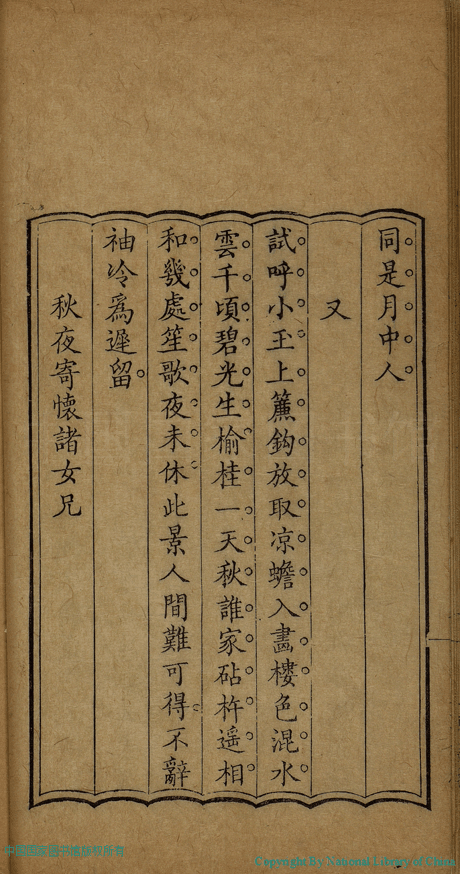 同是月中人
又
試呼小玉上簾鈎放取凉蟾入畵樓色混水
雲千頃碧光生榆桂一天秋誰家砧杵遥相
和幾處笙歌夜未休此景人間難可得不辭
袖冷爲遲留
秋夜寄懷諸女兄
Copyright By National Library of China